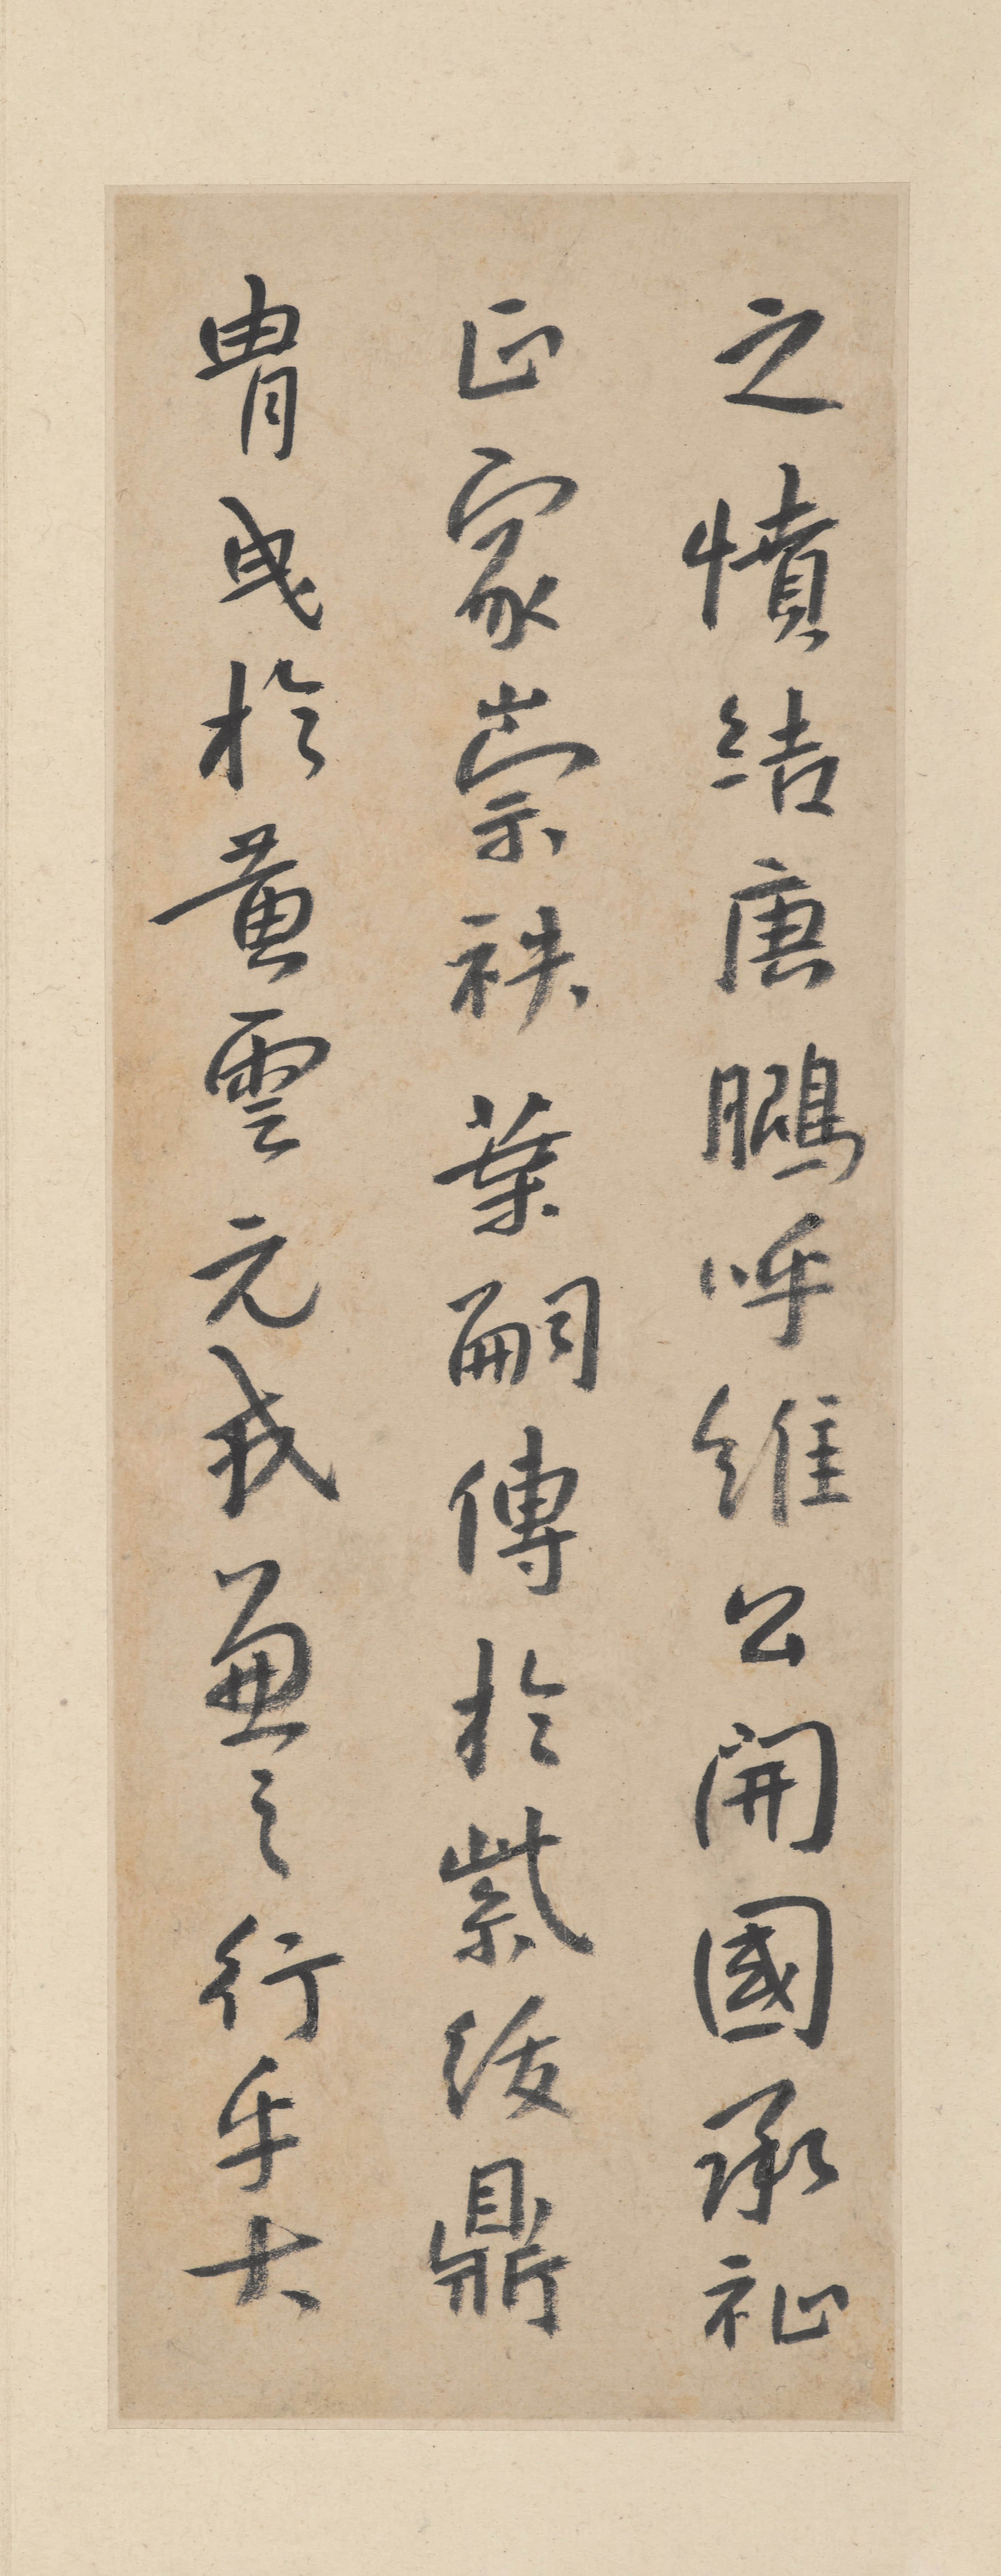 之憤結唐鵬呼維公開國承祉
正家崇秩葉嗣傳於紫綬鼎
胄曳於黃雲元之行乎大